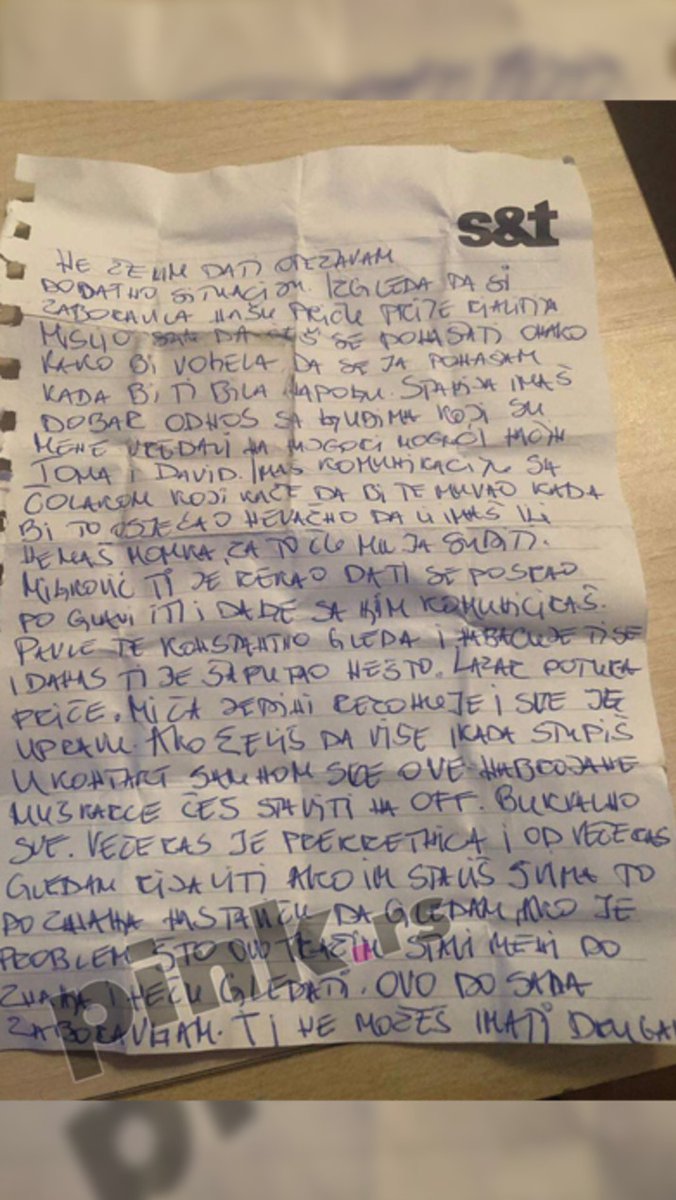 s&t
NE ŽELIM DA TI OTEŽAVAM
DODATNO SITUACIJU. IZGLEDA DA SI
ZABORAVILA NAŠU PRIČU PRIJE RIJALITIJA
MISLIO SAM DA ĆEŠ SE PONAŠATI ONAKO
KAKO BI VOLELA DA SE JA PONAŠAM
KADA BI TI BILA NAPOLJU. STARIJA IMAŠ
DOBAR ODNOS SA LJUDIMA KOJI SU
MENE VREĐALI NA MOGUĆI MOGUĆI NAČIN
TOMA I DAVID. IMAŠ KOMUNIKACIJU SA
ČOLAKOM KOJI KAŽE DA BI TE MUVAO KADA
BI TO OSJEĆAO NEVAŽNO DA LI IMAŠ ILI
NEMAŠ MOMKA, ZA TO ĆU MU JA SUDITI.
MILJKOVIĆ TI JE REKAO DA TI SE POSRAO
PO GLAVI I TI I DALJE SA NJIM KOMUNICIRAŠ.
PAVLE TE KONSTANTNO GLEDA I NABACUJE TI SE
I DANAS TI JE ŠAPUTAO NEŠTO. LAZAR POTURA
PRIČE. MIĆA JEDINI REZONUJE I SVE JE
UPRAVU. AKO ŽELIŠ DA VIŠE IKADA STUPIŠ
U KONTAKT SAMNOM SVE OVE NABROJANE
MUŠKARCE ĆEŠ STAVITI NA OFF. BUKVALNO
SVE. VEČERAS JE PREKRETNICA I OD VEČERAS
GLEDAM RIJALITI AKO IM STAVIŠ SVIMA TO
DO ZNANJA NASTAVIĆU DA GLEDAM, AKO JE
PROBLEM ŠTO OVO TRAŽIM STAVI MENI DO
ZNANJA I NEĆU GLEDATI. OVO DO SADA
ZABORAVLJAM. TI NE MOŽEŠ IMATI DRUGA
pink.rs